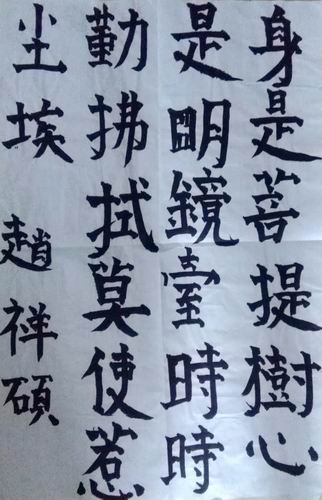 身是菩提樹心
是明鏡臺時時
勤拂拭莫使惹
尘埃 趙祥碩